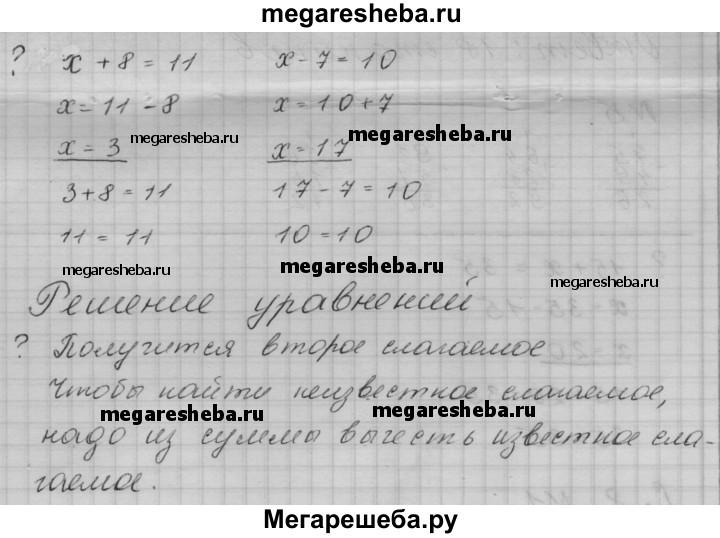 megaresheba.ru
? x + 8 = 11 x - 7 = 10
x = 11 - 8 x = 10 + 7
x = 3 megaresheba.ru x = 17 megaresheba.ru
3 + 8 = 11 17 - 7 = 10
11 = 11 10 = 10
megaresheba.ru megaresheba.ru megaresheba.ru
Решение уравнений
? Получится второе слагаемое
Чтобы найти неизвестное слагаемое,
megaresheba.ru megaresheba.ru
надо из суммы вычесть известное сла-
гаемое.
Мегарешеба.ру